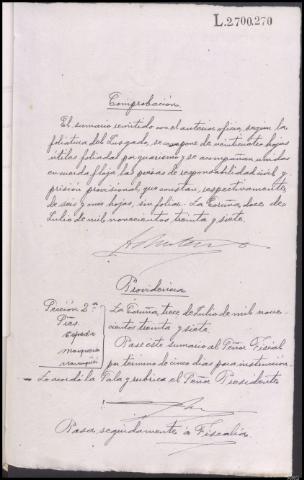 L.2700.270
Comprobación
El sumario remitido con el anterior oficio, segun la
foliatura del Juzgado, se compone de veinticuatro hojas
utiles foliadas por guarismo y se acompañan unidas
en cuerda floja las piezas de responsabilidad civil y
prisión provisional, que constan, respectivamente,
de seis y una hojas, sin foliar. La Coruña, doce de
Julio de mil novecientos treinta y siete.
Providencia
Sección 2ª
Pías
Cepeda
La Coruña, trece de Julio de mil nove-
cientos treinta y siete.
Pase éste sumario al Señor Fiscal
por termino de cinco dias para instrucción.
Lo acordó la Sala y rubrica el Señor Presidente
Pasa seguidamente á Fiscalia.